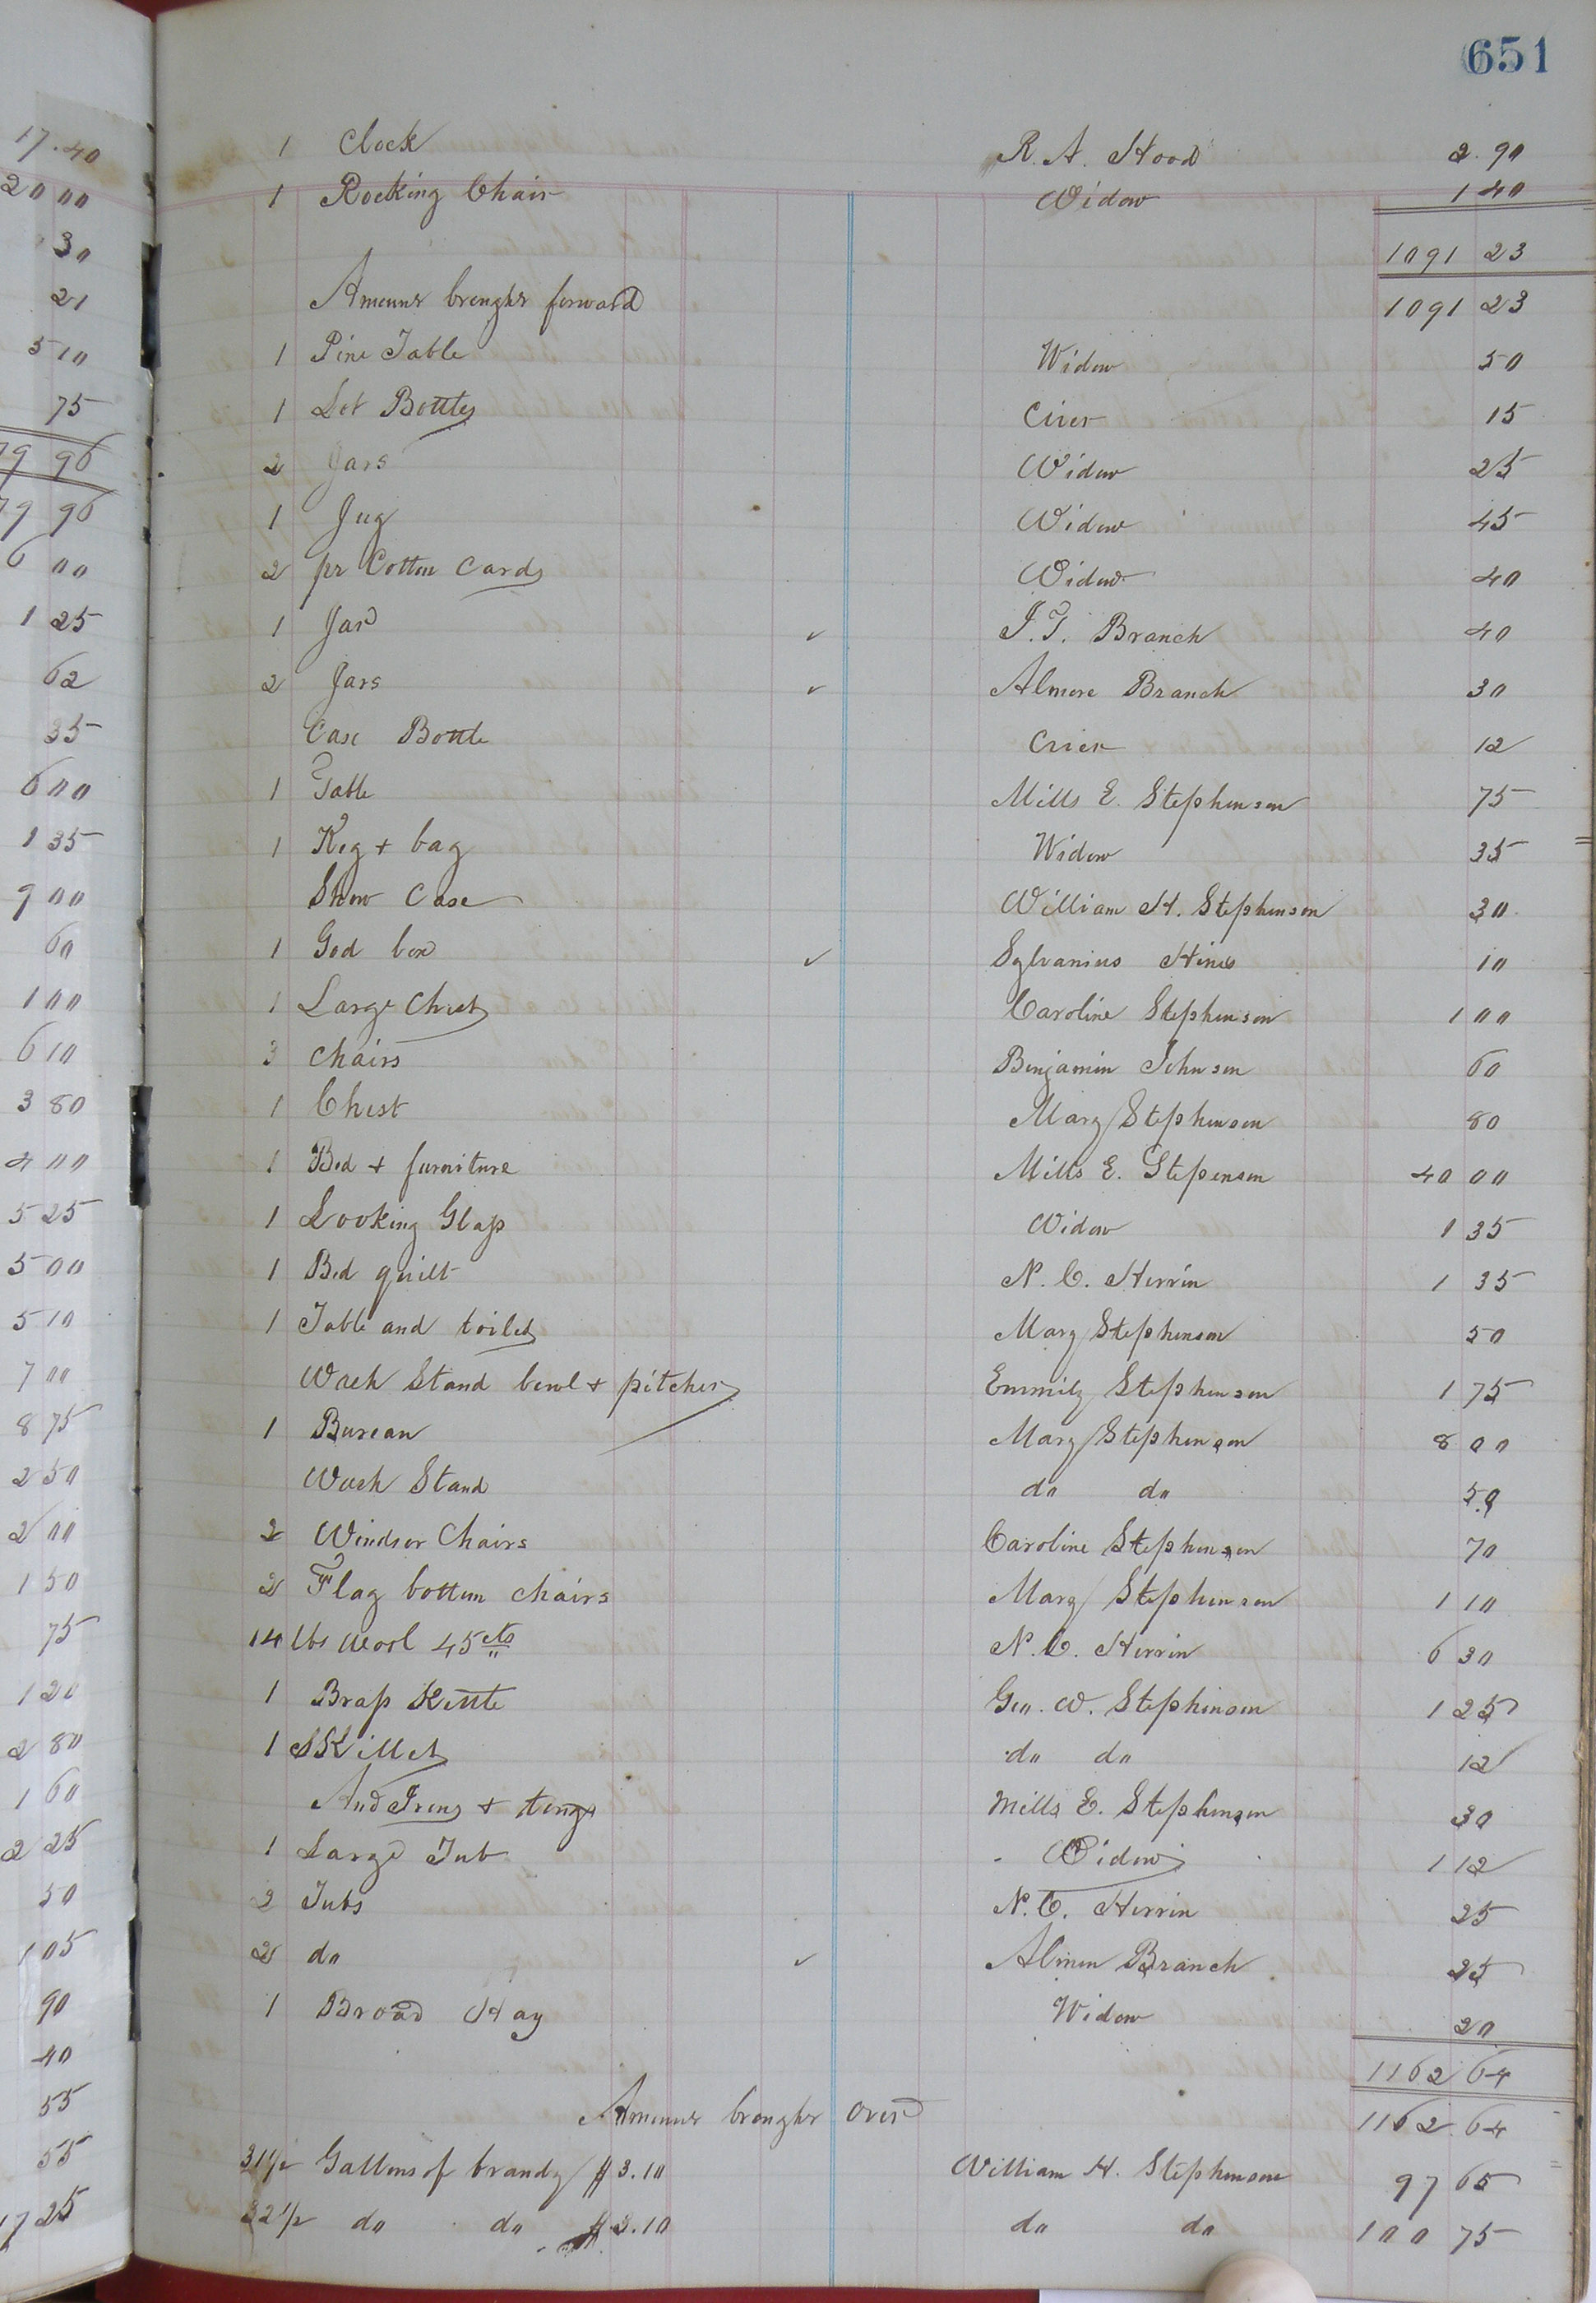 651
17.40
20 00
30
21
5 10
75
79 96
79 96
6 00
1 25
62
35
6 00
1 35
9 00
60
1 00
6 10
3 80
4 00
5 25
5 00
5 10
7 00
8 75
2 50
2 00
1 50
75
1 20
2 80
1 60
2 25
50
1 05
90
40
55
55
17 25
1 Clock R. A. Hood 2.90
1 Rocking Chair Widow 1 40
1091 23
Amount brought forward 1091 23
1 Pine Table Widow 50
1 Lot Bottles Crier 15
2 Jars Widow 25
1 Jug Widow 45
2 pr Cotton Cards Widow 40
1 Jar ✓ J. T. Branch 40
2 Jars ✓ Almore Branch 30
Case Bottle Crier 12
1 Table Mills E. Stephenson 75
1 Keg + bag Widow 35
Show Case William H. Stephenson 30
1 God box ✓ Sylvanius Hines 10
1 Large Chest Caroline Stephenson 1 00
3 Chairs Benjamin Johnson 60
1 Chest Mary Stephenson 80
1 Bed + furniture Mills E. Stepenson 40 00
1 Looking Glass Widow 1 35
1 Bed quilt N. C. Herrin 1 35
1 Table and toilet Mary Stephenson 50
Wash Stand bowl + pitcher Emmily Stephenson 1 75
1 Bureau Mary Stephenson 8 00
Wash Stand do do 50
2 Windsor Chairs Caroline Stephenson 70
2 Flag bottom chairs Mary Stephenson 1 10
14 lbs wool 45 cts N. C. Herrin 6 30
1 Brass Kettle Geo. W. Stephenson 1 25
1 Skillet do do 12
And Irons + tongs Mills E. Stephenson 30
1 Large Tub Widow 1 12
2 Tubs N. C. Herrin 25
2 do ✓ Almon Branch 25
1 Broad Hay Widow 20
1162 64
Amount brought over 1162.64
31½ Gallons of brandy $3.10 William H. Stephenson 97 65
32½ do do $3.10 do do 100 75